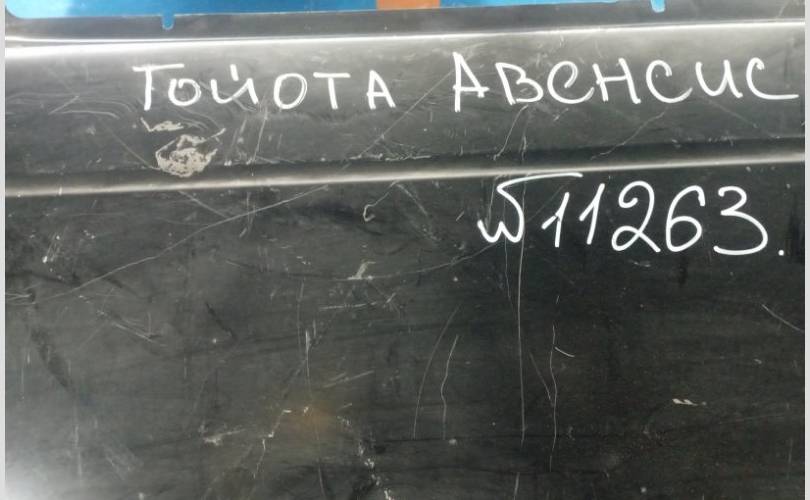 ТОЙОТА АВЕНСИС
№11263.